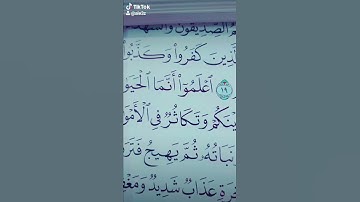 TikTok
مُ ٱلصِّدِّيقُونَ وَٱلشُّهَ
لَّذِينَ كَفَرُوا۟ وَكَذَّبُوا۟
١٩ ٱعْلَمُوٓا۟ أَنَّمَا ٱلْحَيَوٰ
بَيْنَكُمْ وَتَكَاثُرٌ فِى ٱلْأَمْوَ
نَبَاتُهُۥ ثُمَّ يَهِيجُ فَتَرَ
خِرَةِ عَذَابٌ شَدِيدٌ وَمَغْفِ